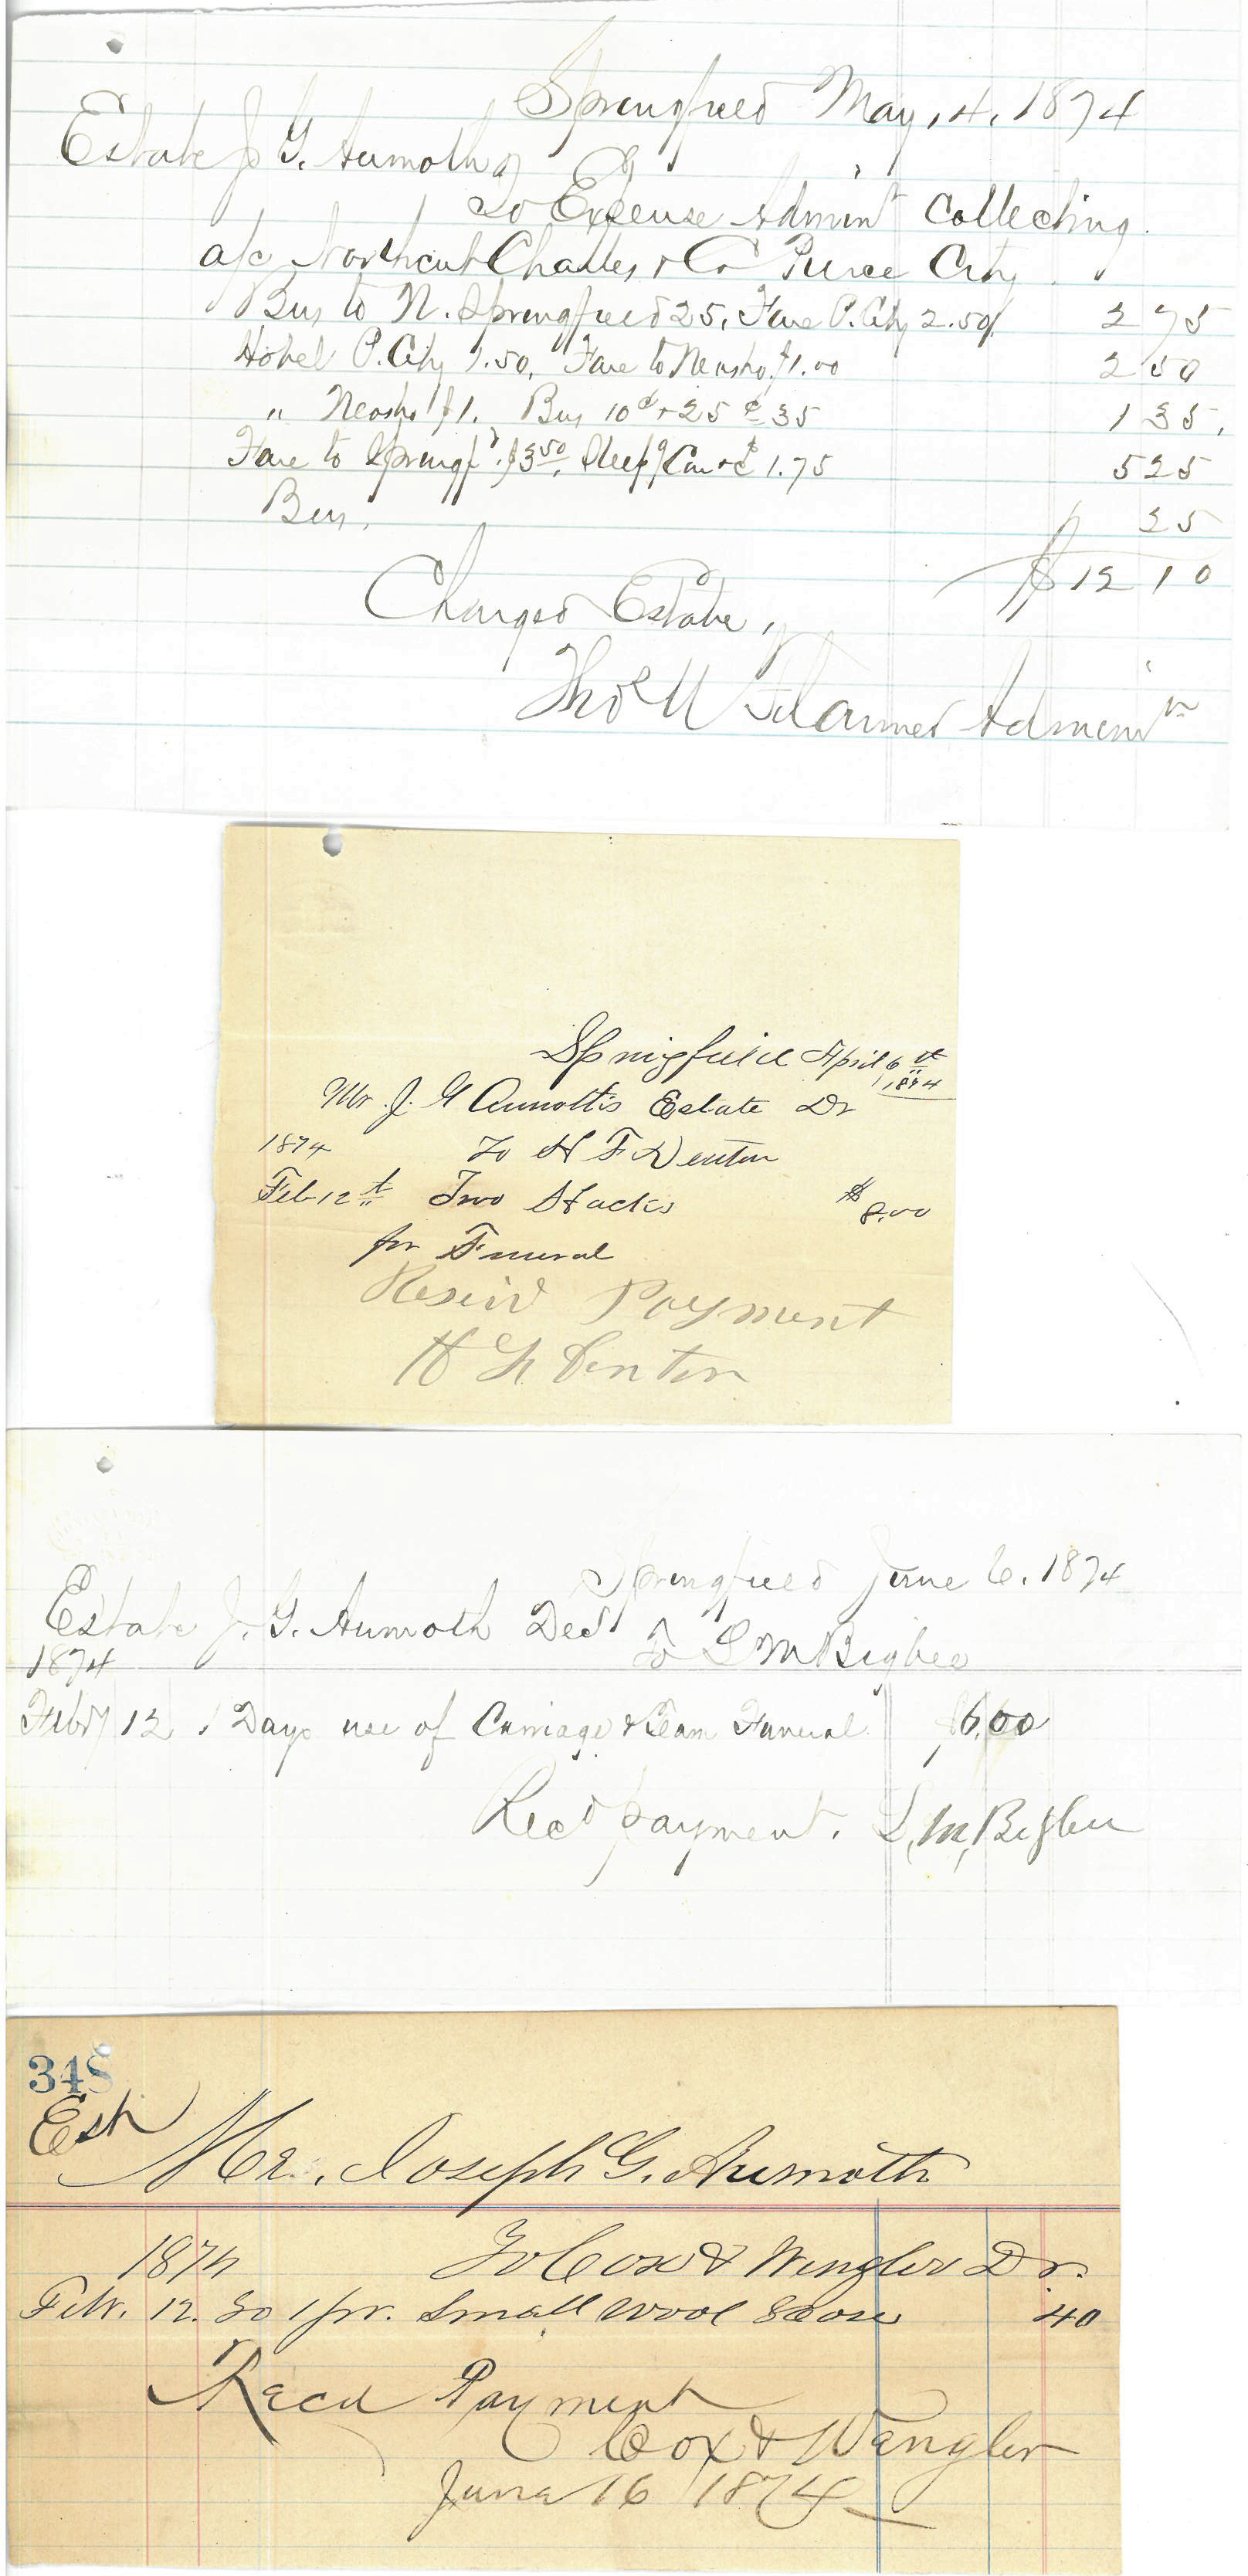 Springfield May, 4, 1874
Estate J. G. Aumoth
To Expense Admin Collecting
a/c Northcut Challes & Co Pierce City
Bus to N. Springfield 25, Fare P. City 2.50 2 75
Hotel P. City 1.50, Fare to Neosho $1.00 2 50
" Neosho $1. Bus 10¢ + 25¢ 35 1 35,
Fare to Springf'd $3.50, Sleep'g Car &c 1.75 5 25
Bus, 25
$12 10
Charged Estate,
Thos W Admin
Springfield April 6th
1874
Mr. J. G Aumottis Estate Dr
1874 To H F Denton
Feb 12th Two Hacks $8.00
for Funeral
Reseivd Payment
H F Denton
Springfield June 6. 1874
Estate J. G. Aumoth Decd
To L M Bigbee
1874
Feby 12 1 Days use of Carriage & Team Funeral $6.00
Recd payment. L, M, Bigbee
348
Est
Mr. Joseph G. Aumoth
1874 To Cox & Wengler Dr.
Febr. 12. To 1 pr. Small wool 40
Recd Payment
Cox & Wengler
June 16 1874